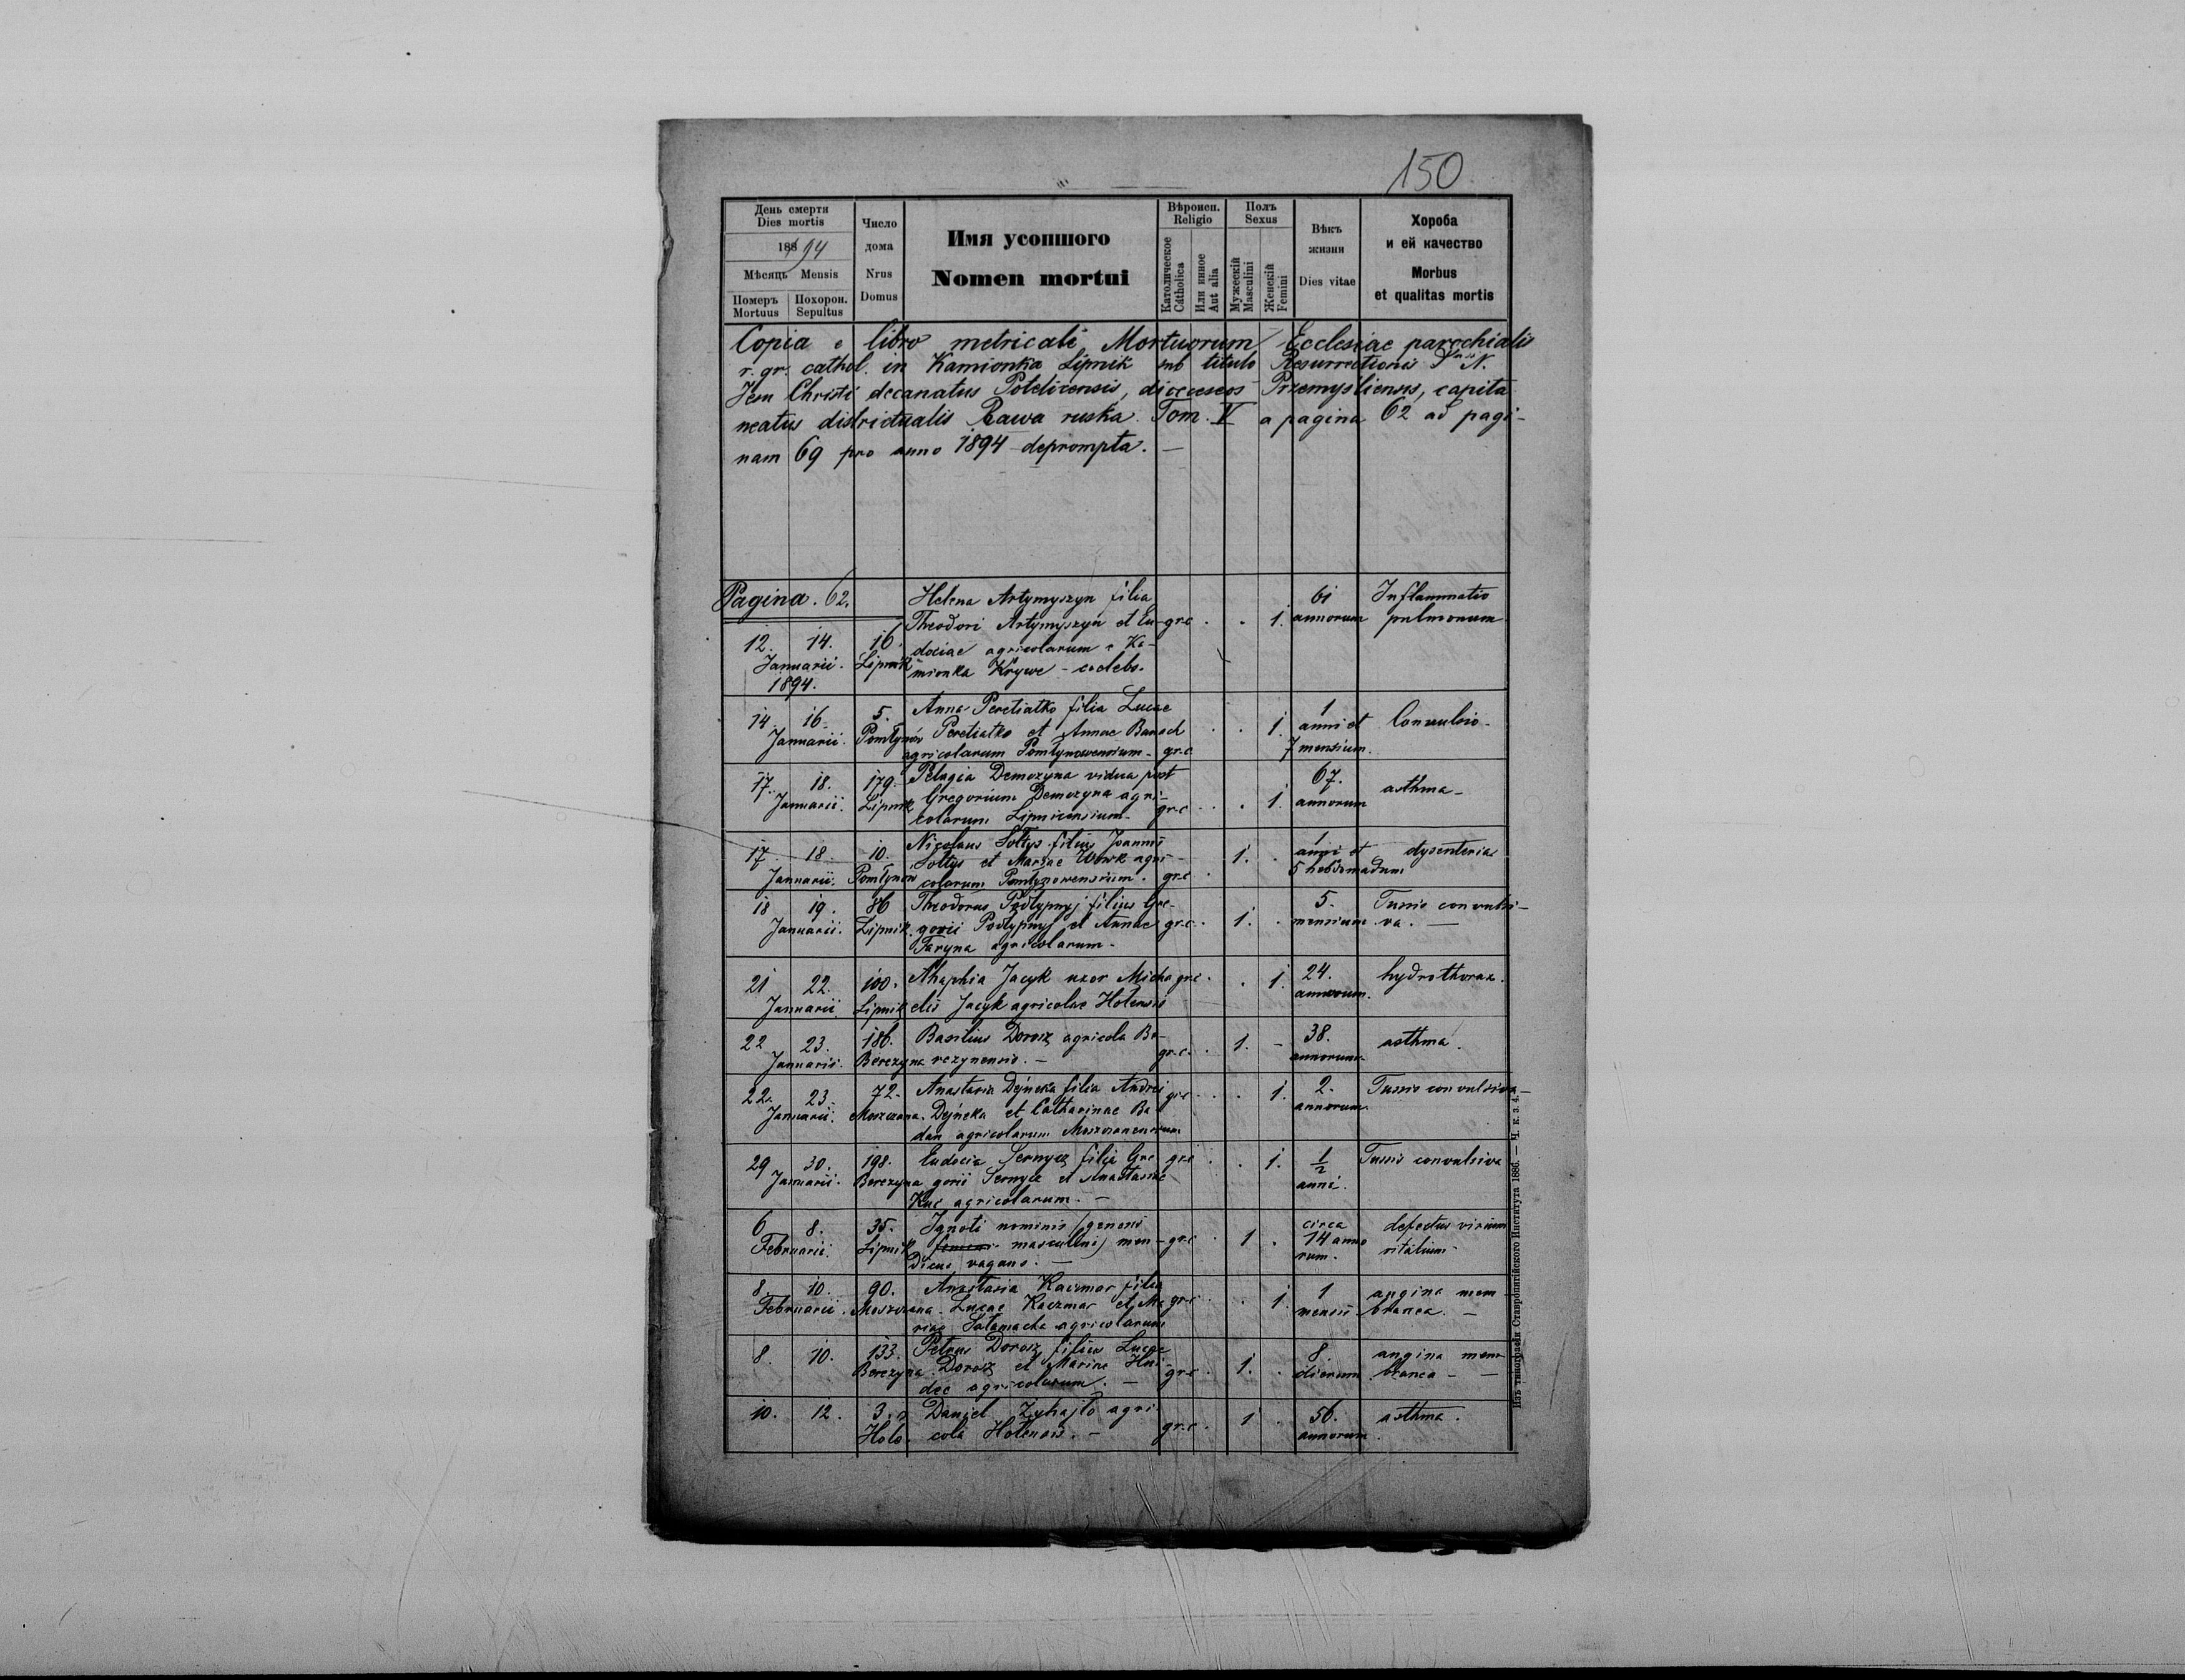 150
День смерти
Dies mortis
188 94
Мѣсяцъ Mensis
Померъ Mortuus
Похорон. Sepultus
Число дома
Nrus Domus
Имя усопшого
Nomen mortui
Вѣроисп.
Religio
Католическое Catholica
Или инное Aut alia
Полъ
Sexus
Мужескій Masculini
Женскій Femini
Вѣкъ жизни
Dies vitae
Хороба
и ей качество
Morbus
et qualitas mortis
Copia e libro metricali Mortuorum Ecclesiae parochialis
r. gr. cathol. in Kamionka Lipnik sub titulo Resurrectionis D N.
Jesu Christi decanatus Potelicensis, dioeceseos Przemysliensis, capita
neatus districtualis Rawa ruska. Tom. V a pagina 62 ad pagi-
nam 69 pro anno 1894 deprompta. —
Pagina. 62.
Helena Artymyszyn filia 61 Inflammatio
Theodori Artymyszyn et Eu- gr.c 1. annorum pulmonum
12. 14. 16. dociae agricolarum e Ka-
Januarii. Lipnik mionka Krywe - caelebs.
1894.
14. 16. 5. Anna Peretiatko filia Lucae 1
Januarii. Pomłynów Peretiatko et Annae Banach 1. anni et Convulsio-
agricolarum Pomłynowensium- gr.c 7 mensium.
17. 18. 179. Pelagia Demozyna vidua post 67.
Januarii. Lipnik Gregorium Demozyna agri- 1. annorum asthma-
colarum Lipnicensium- gr.c
17. 18. 10. Nicolaus Soltys filius Joannis 1
Soltys et Mariae Wowk agri- 1. anni et dysenteria
Januarii. Pomłynow colarum Pomłynowensium. gr.c 5 hebdomadum
18 19. 86 Theodorus Podłypnyj filius Gre- 5. Tussis convulsi-
Januarii. Lipnik. gorii Podłypnyj et Annae gr.c 1. mensium va. —
Faryna agricolarum-
21 22. 100. Ahaphia Jacyk uxor Micha gr.c 1. 24. hydrothorax.
Januarii Lipnik elis Jacyk agricolae Holensis annorum.
22 23. 186. Basilius Dorosz agricola Be- 1. 38. asthma.
Januarii. Berezyna rezynensis. — gr.c. annorum
22. 23. 72. Anastasia Dejneka filia Andrei gr.c 1. 2. Tussis convulsiva-
Januarii. Moszczana. Dejneka et Catharinae Ba- annorum
dan agricolarum Moszczanensium
29 30. 198. Eudocia Sernycz filia Gre gr.c 1. 1/2 Tussis convulsiva
Januarii. Berezyna gorii Sernycz et Anastasiae anni.
Kuc agricolarum. —
6 8. 35. Ignoti nominis (generis circa defectus virium
Februarii. Lipnik masculini) men- gr.c 1 74 anno vitalium-
dicus vagans. — rum.
8. 10. 90. Anastasia Kaczmar filia 1 angina mem
Februarii. Moszczana. Lucae Kaczmar et Ma gr.c 1 mensis branca. —
riae Sałamacha agricolarum
8. 10. 133. Petrus Dorosz filius Lucae 8 angina mem
Berezyna. Dorosz et Mariae Hni- gr.c 1. dierum branca- —
dec agricolarum. —
10. 12. 3. Daniel Zyhajło agri 1 56. asthma.
Hole. cola Holensis. — gr.c annorum.
Изъ типографіи Ставропигійского Института 1886. — Ч. к. з. 4.